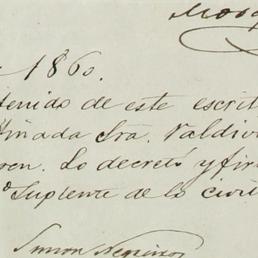 1860.
tenido de este escrit
finada Sra. Valdivi
ren. Lo decretó y fir
Suplente de lo civil
Simon